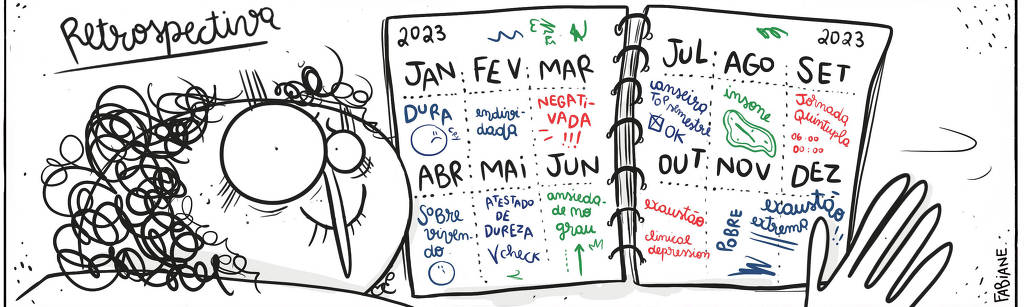 Retrospectiva
2023
JAN FEV MAR
DURA
endivi-
dada
NEGATI-
VADA
!!!
ABR MAI JUN
Sobre
viven-
do
ATESTADO
DE
DUREZA
V check
ansieda-
de no
grau
M
2023
JUL AGO SET
canseira
TOP semestre
OK
insone
Jornada
quíntupla
06:00
00:00
OUT NOV DEZ
exaustão
clinical
depression
POBRE
exaustão
extrema
FABIANE